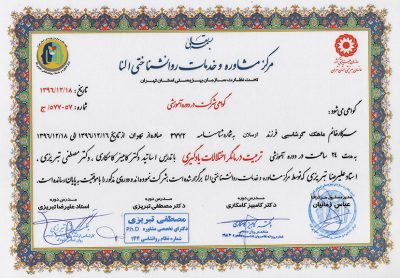 بسمه تعالی
مرکز مشاوره و خدمات روانشناختی النا
تحت نظارت سازمان بهزیستی استان تهران
تاریخ : ۱۳۹۶/۱۲/۱۸
گواهی شرکت در دوره آموزشی
شماره : ۵۷-۵۷۷ج
گواهی می شود :
سرکار خانم ماهتک گرشاسبی فرزند ارسلان به شماره شناسنامه ۳۷۷۲ صادره از تهران از تاریخ ۱۳۹۶/۱۲/۱۶ الی ۱۳۹۶/۱۲/۱۸
به مدت ۲۴ ساعت در دوره آموزشی تربیت درمانگر اختلالات یادگیری با تدریس اساتید دکتر کامبیز کامکاری ، دکتر مصطفی تبریزی ،
استاد علیرضا تبریزی که توسط مرکز مشاوره و خدمات روانشناختی النا برگزار شده است شرکت نموده اند و دوره ی مذکور را با موفقیت به پایان رسانده است.
عباس زمانیان
مدرس دوره
دکتر کامبیز کامکاری
مدرس دوره
دکتر مصطفی تبریزی
مدرس دوره
استاد علیرضا تبریزی
مصطفی تبریزی
دکترای تخصصی مشاوره P.h.D
شماره نظام روانشناسی ۱۴۴